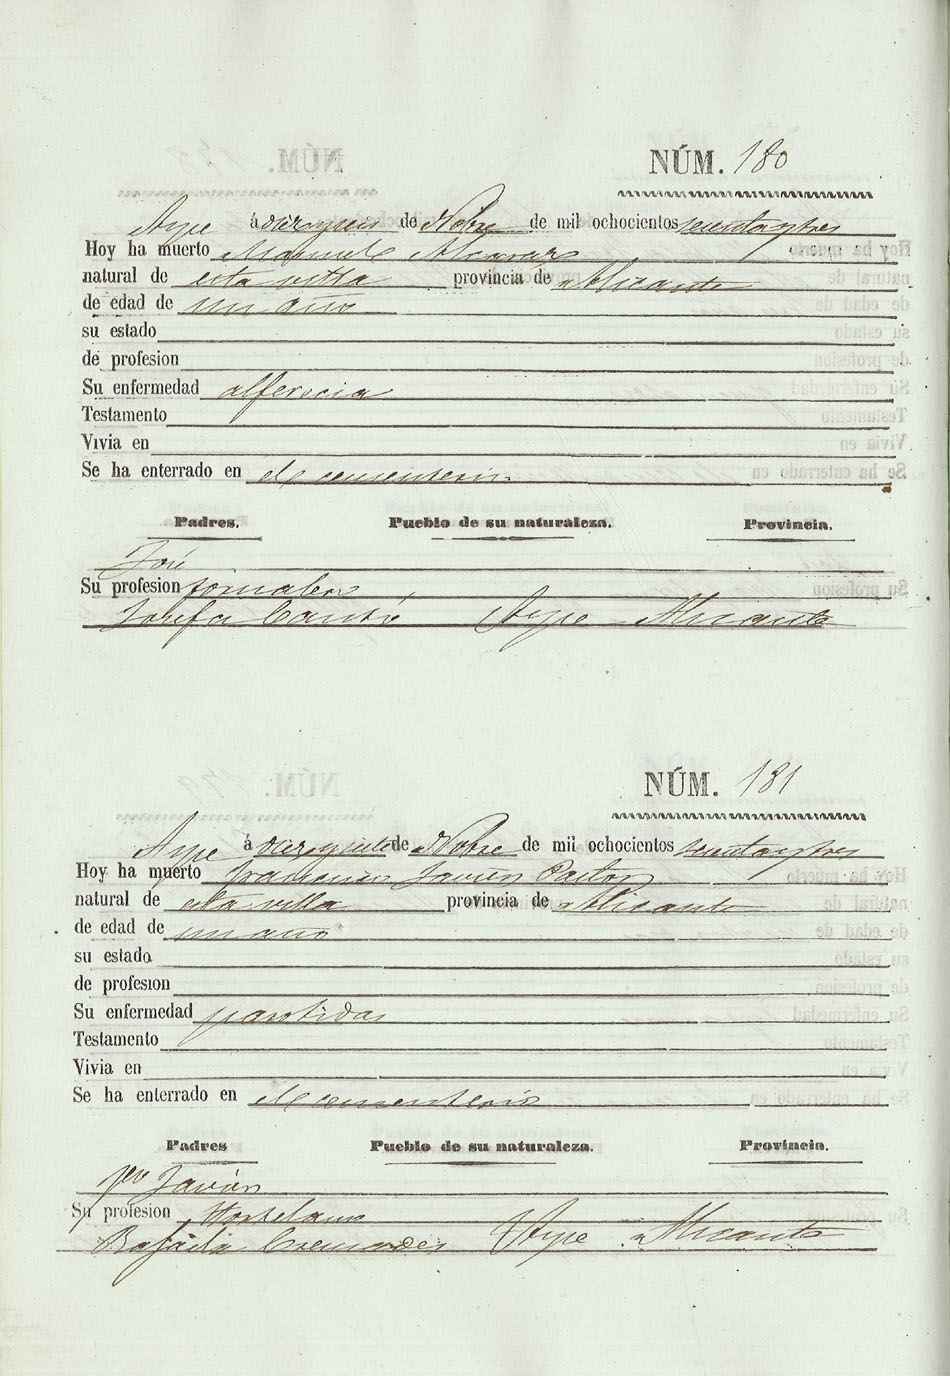 NÚM. 180
Aspe á diez y seis de Nobre de mil ochocientos sesenta y tres
Hoy ha muerto Manuel Alcaraz
natural de esta villa provincia de Alicante
de edad de un año
su estado
de profesion
Su enfermedad alferecia
Testamento
Vivia en
Se ha enterrado en el cementerio
Padres. Pueblo de su naturaleza. Provincia.
José
Su profesion Jornalero
Josefa Cantó Aspe Alicante
NÚM. 181
Aspe á diez y siete de Nobre de mil ochocientos sesenta y tres
Hoy ha muerto Francisco Javier Pastor
natural de esta villa provincia de Alicante
de edad de un año
su estado
de profesion
Su enfermedad parotidas
Testamento
Vivia en
Se ha enterrado en el cementerio
Padres Pueblo de su naturaleza. Provincia.
Javier
Su profesion Hortelano
Rafaela Cremades Aspe Alicante